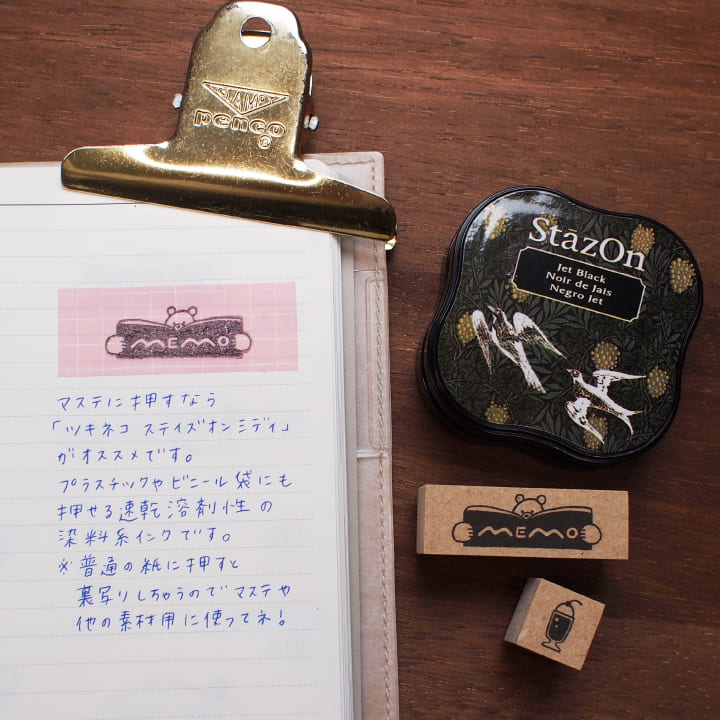 CLAMPY
penco®
StāzOn
Jet Black
Noir de Jais
Negro Jet
MEMO
マステに押すなら
「ツキネコ ステイズオンミディ」
がオススメです。
プラスチックやビニール袋にも
押せる速乾溶剤性の
染料系インクです。
※普通の紙に押すと
裏写りしちゃうのでマステや
他の素材用に使ってネ!
MEMO